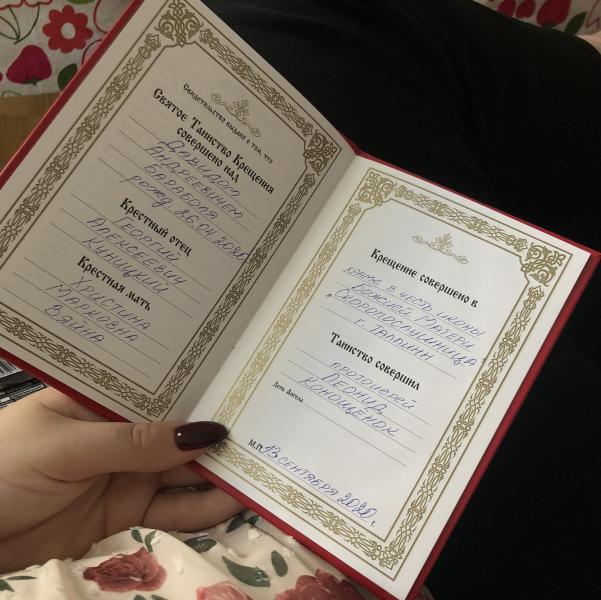 Свидетельство выдано о том, что
Святое Таинство Крещения
совершено над
ДАВИДОМ
АНДРЕЕВИЧЕМ
БАРАБОЛЯ
рожд 26.04 2020
Крестный отец
ГЕОРГИЙ
АЛЕКСЕЕВИЧ
КУНИЦКИЙ
Крестная мать
ХРИСТИНА
МАРКОВНА
ВЯЙНА
Крещение совершено в
храме в честь иконы
Божией Матери
"Скоропослушница"
г. Таллинн
Таинство совершил
протоиерей
Леонид
КОНОЩЕНОК
День Ангела
М.П. 13 сентября 2020 г.